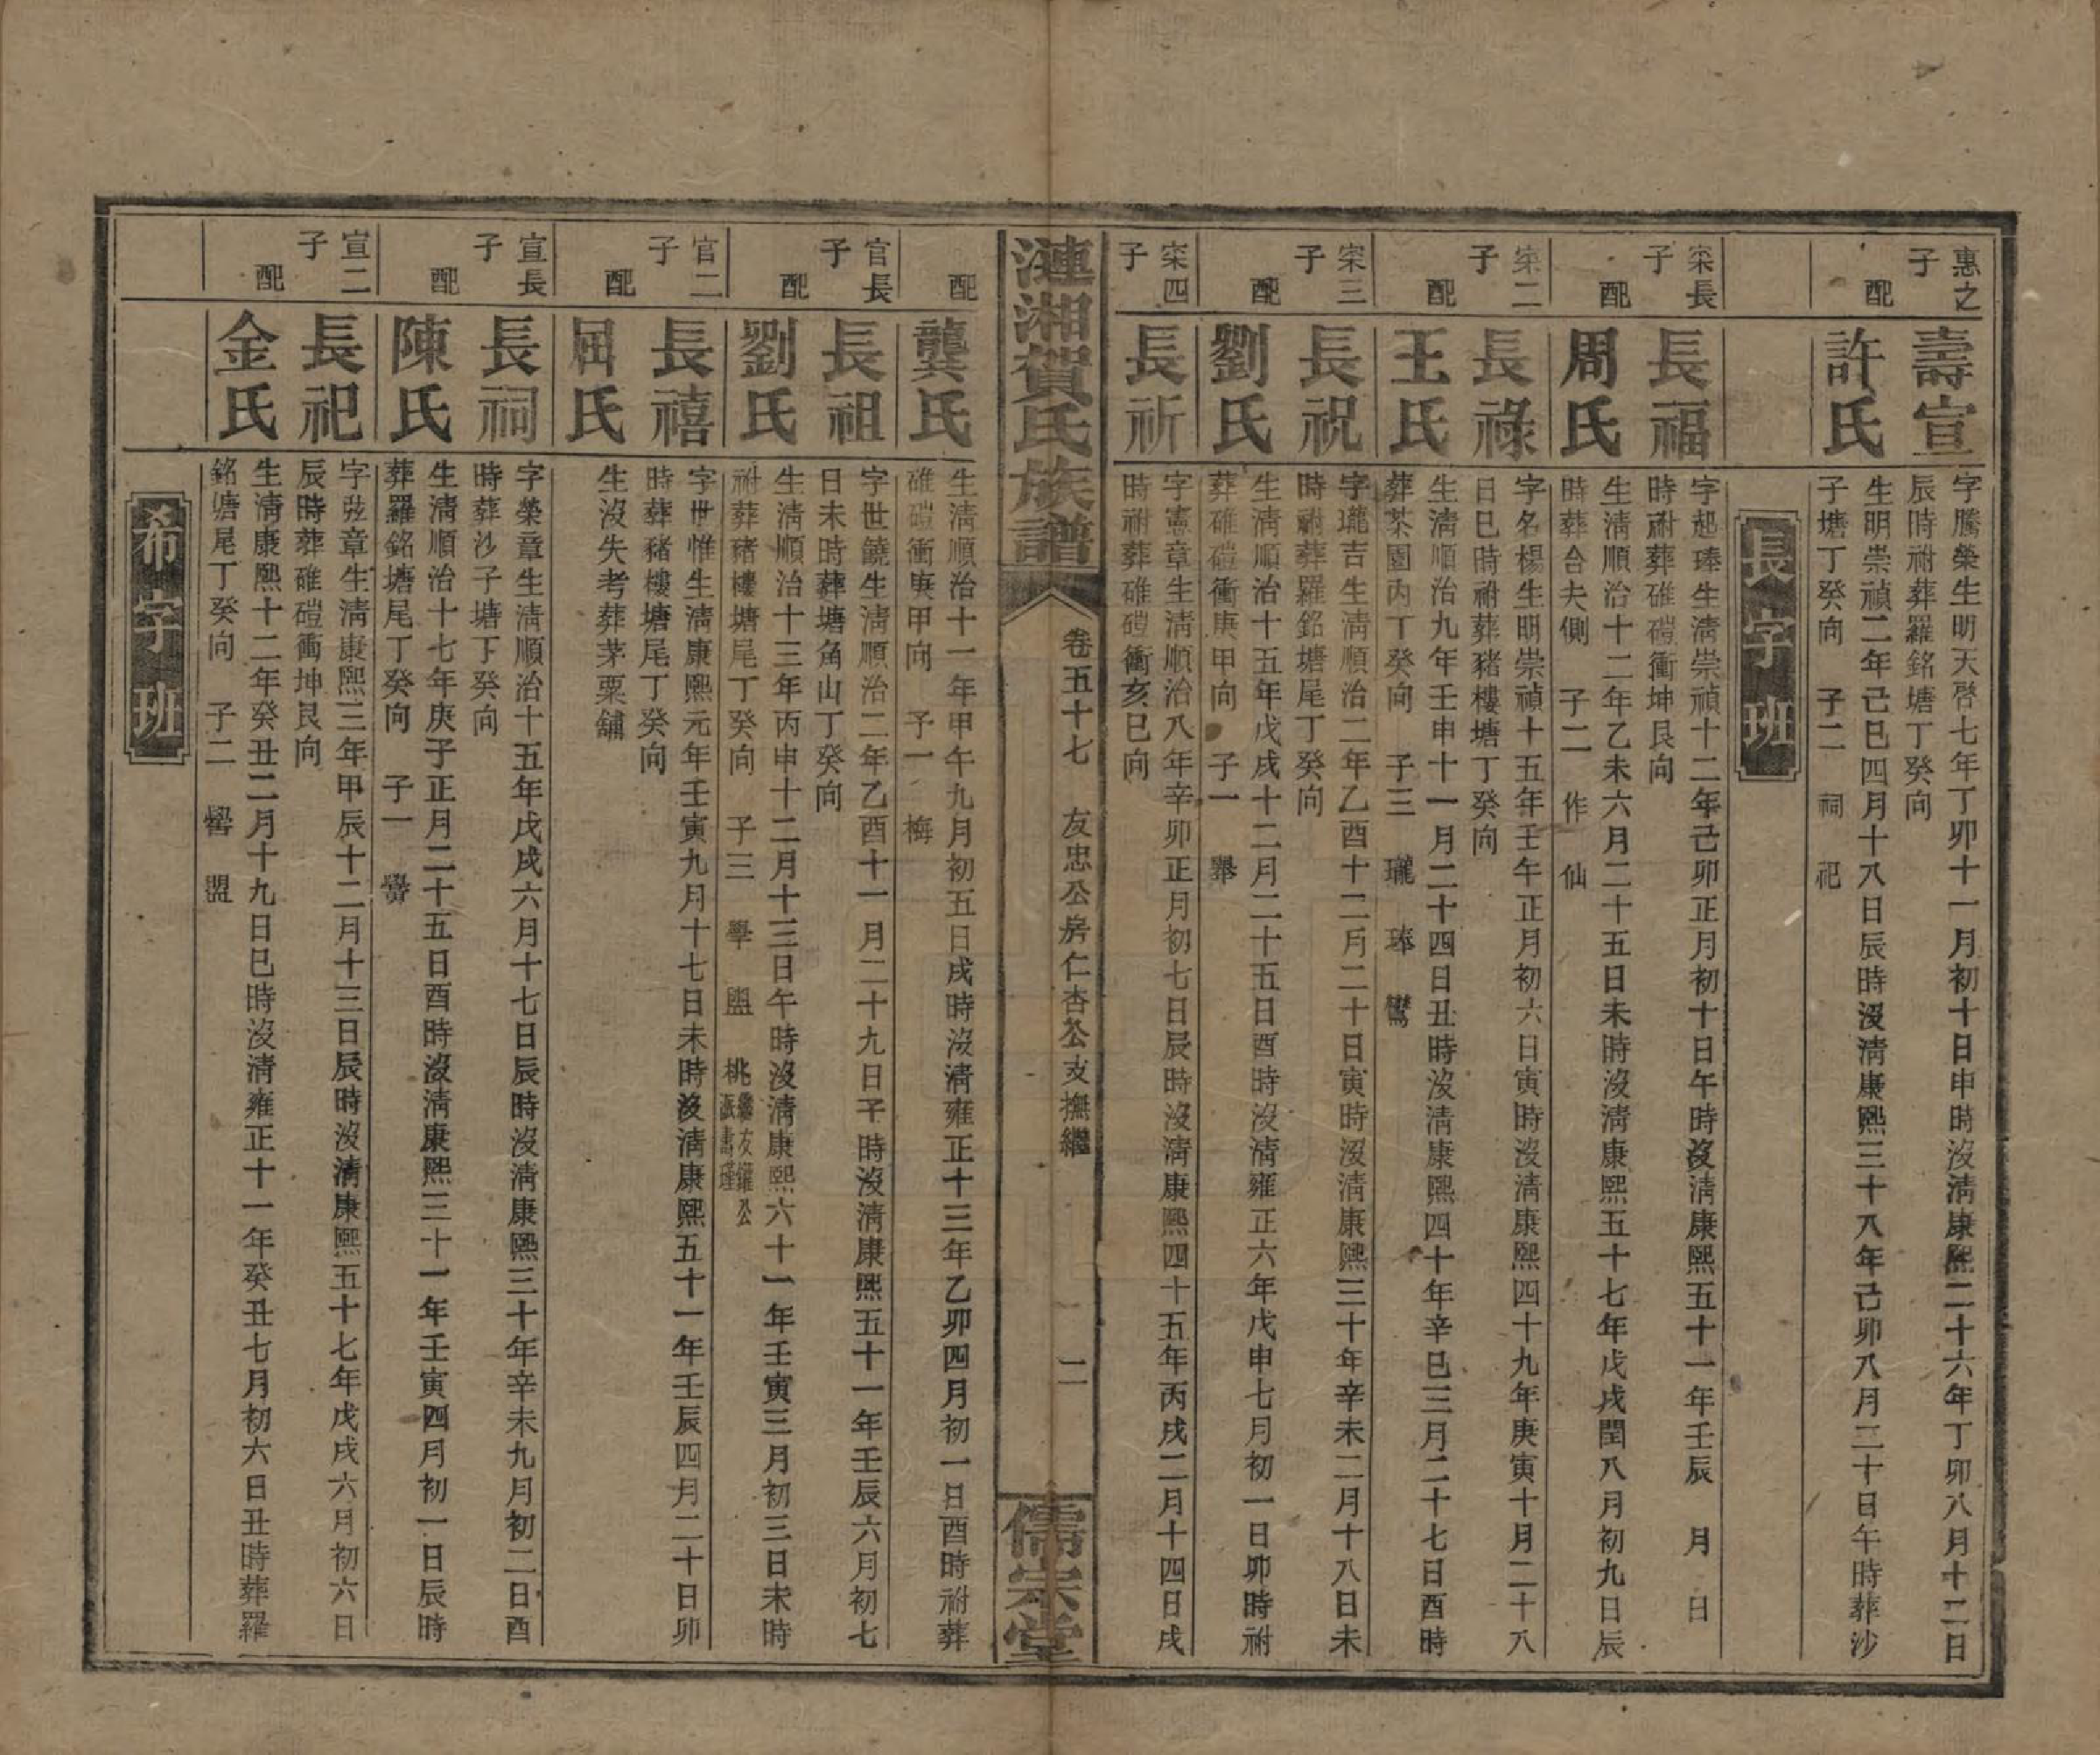 惠之子
壽宣
字騰榮生明天啓七年丁卯十一月初十日申時沒淸康熙二十六年丁卯八月十二日
辰時祔葬羅銘塘丁癸向
配
許氏
生明崇禎二年己巳四月十八日辰時沒淸康熙三十八年己卯八月二十日午時葬沙
子塘丁癸向 子二 祠 祀
長字班
寀長子
長福
字起瑧生淸崇禎十二年己卯正月初十日午時沒淸康熙五十一年壬辰 月 日
時祔葬碓磑衝坤艮向
配
周氏
生淸順治十二年乙未六月二十五日未時沒淸康熙五十七年戊戌閏八月初九日辰
時葬台夫側 子二 作 仙
寀二子
長祿
字名楊生明崇禎十五年壬午正月初六日寅時沒淸康熙四十九年庚寅十月二十八
日巳時祔葬豬樓塘丁癸向
配
王氏
生淸順治九年壬申十一月二十四日丑時沒淸康熙四十年辛巳三月二十七日酉時
葬茶園內丁癸向 子三 瓏 瑧 鸞
寀三子
長祝
字瓏吉生淸順治二年乙酉十二月二十日寅時沒淸康熙三十年辛未二月十八日未
時祔葬羅銘塘尾丁癸向
配
劉氏
生淸順治十五年戊戌十二月二十五日酉時沒淸雍正六年戊申七月初一日卯時祔
葬碓磑衝庚甲向 子一 舉
寀四子
長祈
字憲章生淸順治八年辛卯正月初七日辰時沒淸康熙四十五年丙戌二月十四日戌
時祔葬碓磑衝亥巳向
漣湘賀氏族譜
卷五十七 友忠公房仁杏公支撫繼
二
儒宗堂
配
龔氏
生淸順治十一年甲午九月初五日戌時沒淸雍正十三年乙卯四月初一日酉時祔葬
碓磑衝庚甲向 子一 梅
官長子
長祖
字世鐃生淸順治二年乙酉十一月二十九日子時沒淸康熙五十一年壬辰六月初七
日未時葬塘角山丁癸向
配
劉氏
生淸順治十三年丙申十二月十三日午時沒淸康熙六十一年壬寅三月初三日未時
祔葬豬樓塘尾丁癸向 子三 學 盥 桃 繼友鑵公派壽瑾
官二子
長禧
字世惟生淸康熙元年壬寅九月十七日未時沒淸康熙五十一年壬辰四月二十日卯
時葬豬樓塘尾丁癸向
配
屈氏
生沒失考葬茅粟舖
宣長子
長祠
字榮章生淸順治十五年戊戌六月十七日辰時沒淸康熙三十年辛未九月初二日酉
時葬沙子塘下癸向
配
陳氏
生淸順治十七年庚子正月二十五日酉時沒淸康熙三十一年壬寅四月初一日辰時
葬羅銘塘尾丁癸向 子一 黌
宣二子
長祀
字玆章生淸康熙三年甲辰十二月十三日辰時沒淸康熙五十七年戊戌六月初六日
辰時葬碓磑衝坤艮向
配
金氏
生淸康熙十二年癸丑二月十九日巳時沒淸雍正十一年癸丑七月初六日丑時葬羅
銘塘尾丁癸向 子二 嚳 盟
希字班